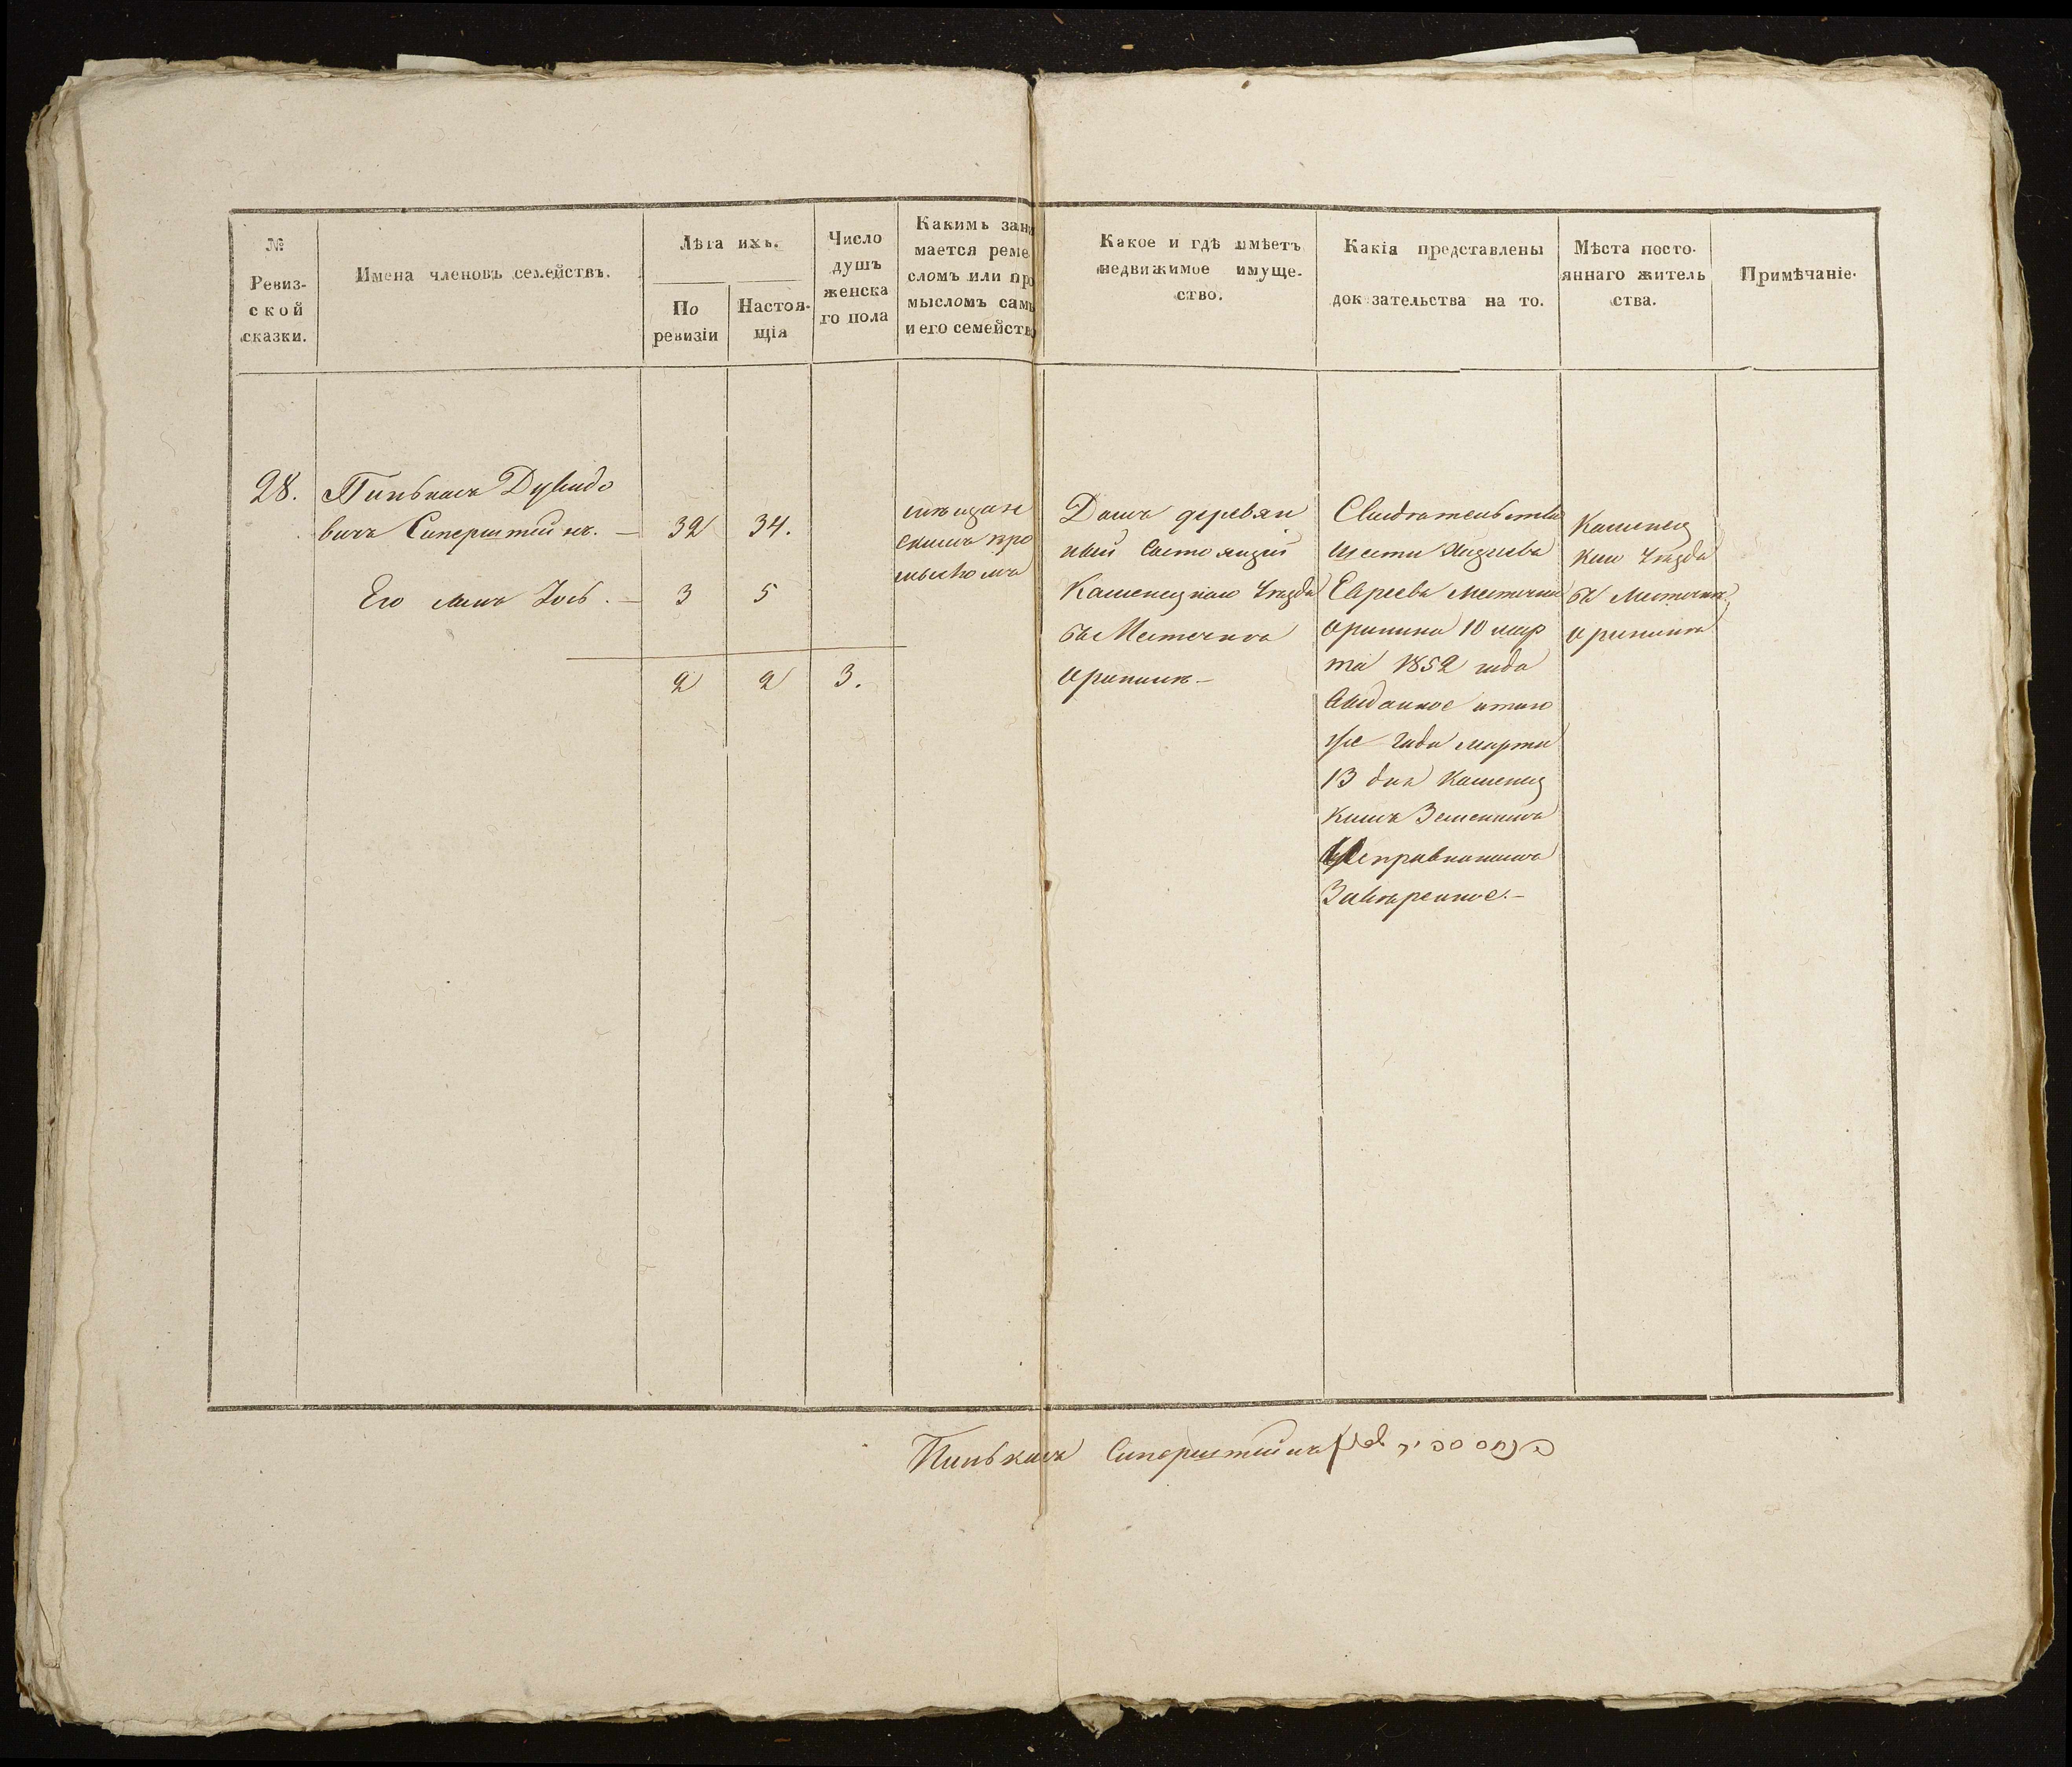 №
Ревиз-
ской
сказки.
Имена членовъ семействъ.
Лѣта ихъ.
По
ревизіи
Настоя-
щія
Число
душъ
женска
го пола
Какимъ зани
мается реме
сломъ или про
мысломъ самъ
и его семейство
Какое и гдѣ имѣетъ
недвижимое имуще-
ство.
Какія представлены
доказательства на то.
Мѣста посто-
яннаго житель
ства.
Примѣчаніе.
28.
Пинькасъ Дувидо
вичъ Сиперштейнъ. —
32
34.
Его сынъ Іось. —
3
5
2
2
3.
мѣщан
скимъ про
мысломъ
Домъ деревян
ный состоящій
Каменецкаго Уѣзда
въ Местечкѣ
Орынинѣ —
Свидѣтельство
шести
Евреевъ местечка
Орынина 10 мар
та 1852 года
выданное
же года марта
13 дня Каменец
кимъ Земскимъ
Исправникомъ
Завѣренное. —
Каменец
каго Уѣзда
въ Местечкѣ
Орынинѣ
Пинькасъ Сиперштейнъ